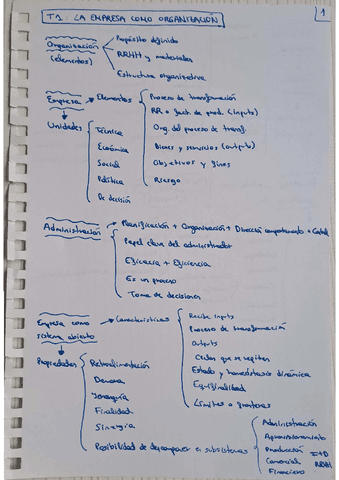 T1: LA EMPRESA COMO ORGANIZACIÓN
1
Organización (elementos)
Propósito definido
RRHH y materiales
Estructura organizativa
Empresa → Elementos
Proceso de transformación
RR o fact. de prod. (inputs)
Org. del proceso de transf.
Bienes y servicios (outputs)
Objetivos y fines
Riesgo
Unidades
Técnica
Económica
Social
Política
De decisión
Administración
Planificación + Organización + Dirección comportamiento + Control
Papel clave del administrador
Eficacia + Eficiencia
Es un proceso
Toma de decisiones
Empresa como sistema abierto
Características
Recibe inputs
Proceso de transformación
Outputs
Ciclos que se repiten
Estado y homeóstasis dinámica
Equifinalidad
Límites o fronteras
Propiedades
Retroalimentación
Demora
Jerarquía
Finalidad
Sinergia
Posibilidad de descomponer en subsistemas
Administración
Aprovisionamiento
Producción I+D
Comercial RRHH
Financiero